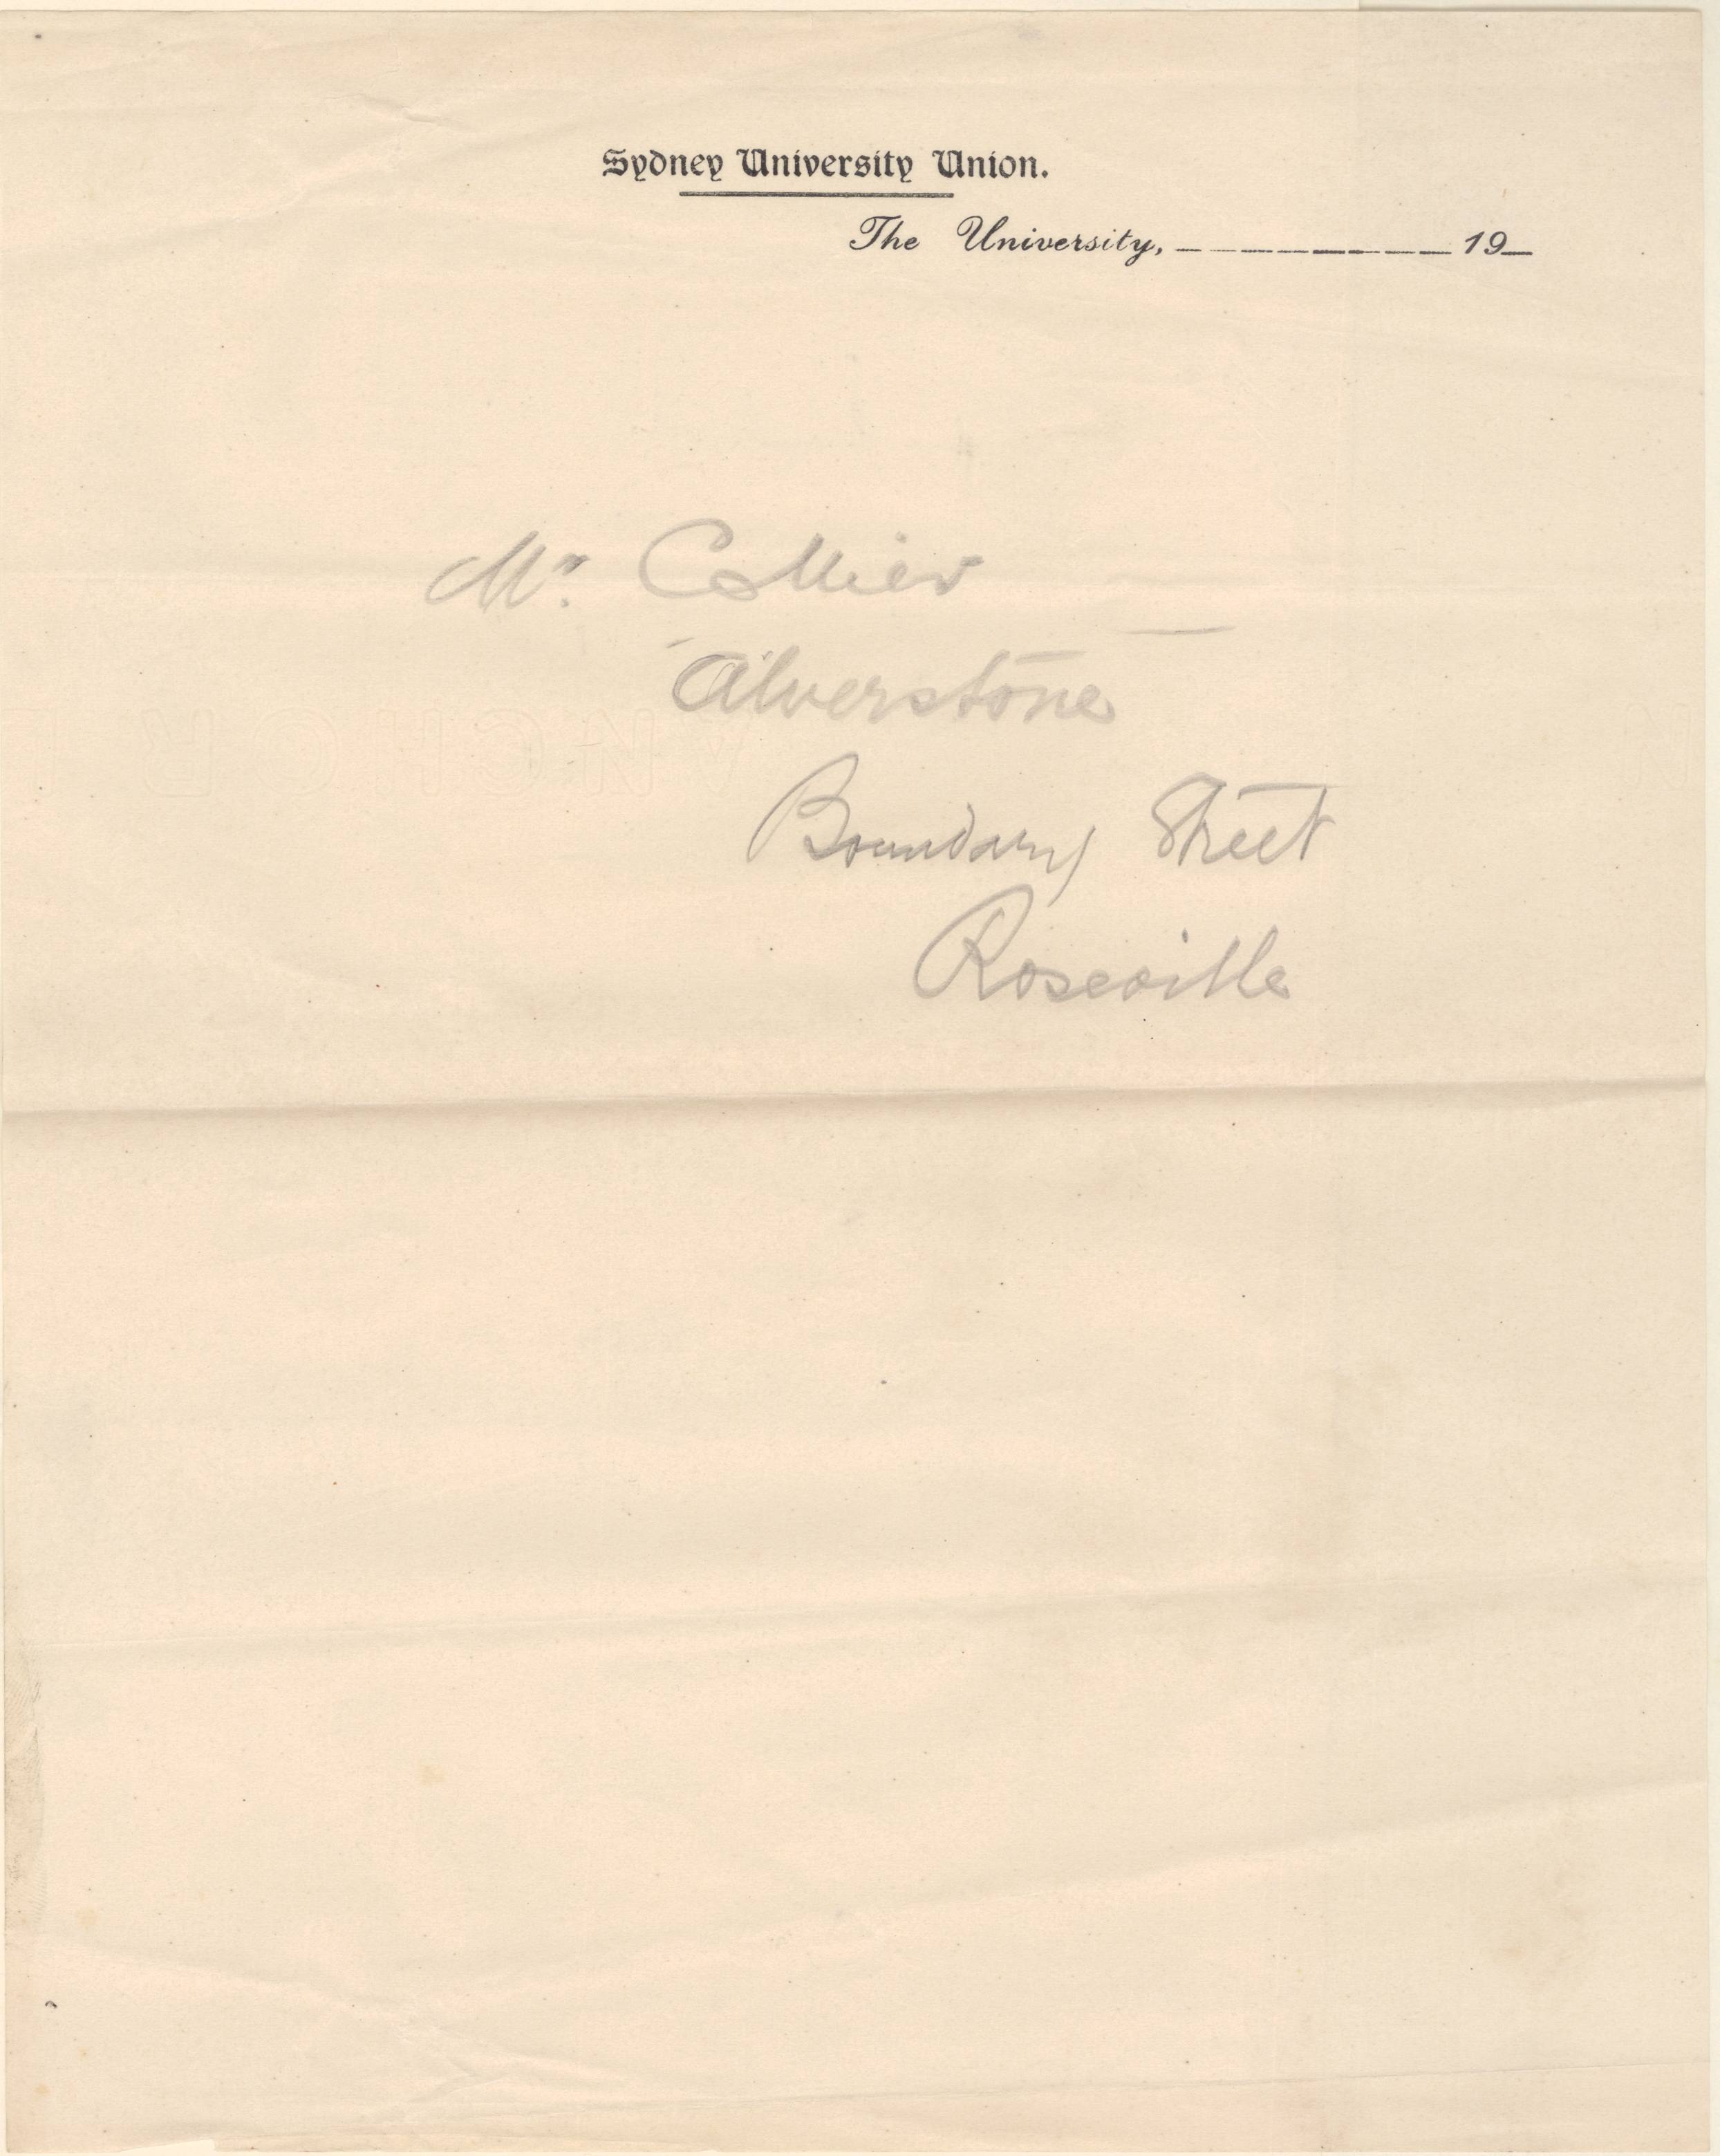 Sydney University Union.
The University, __________ 19_
Mr. Collier
"Alverstone"
Boundary Street
Roseville
ANCHOR